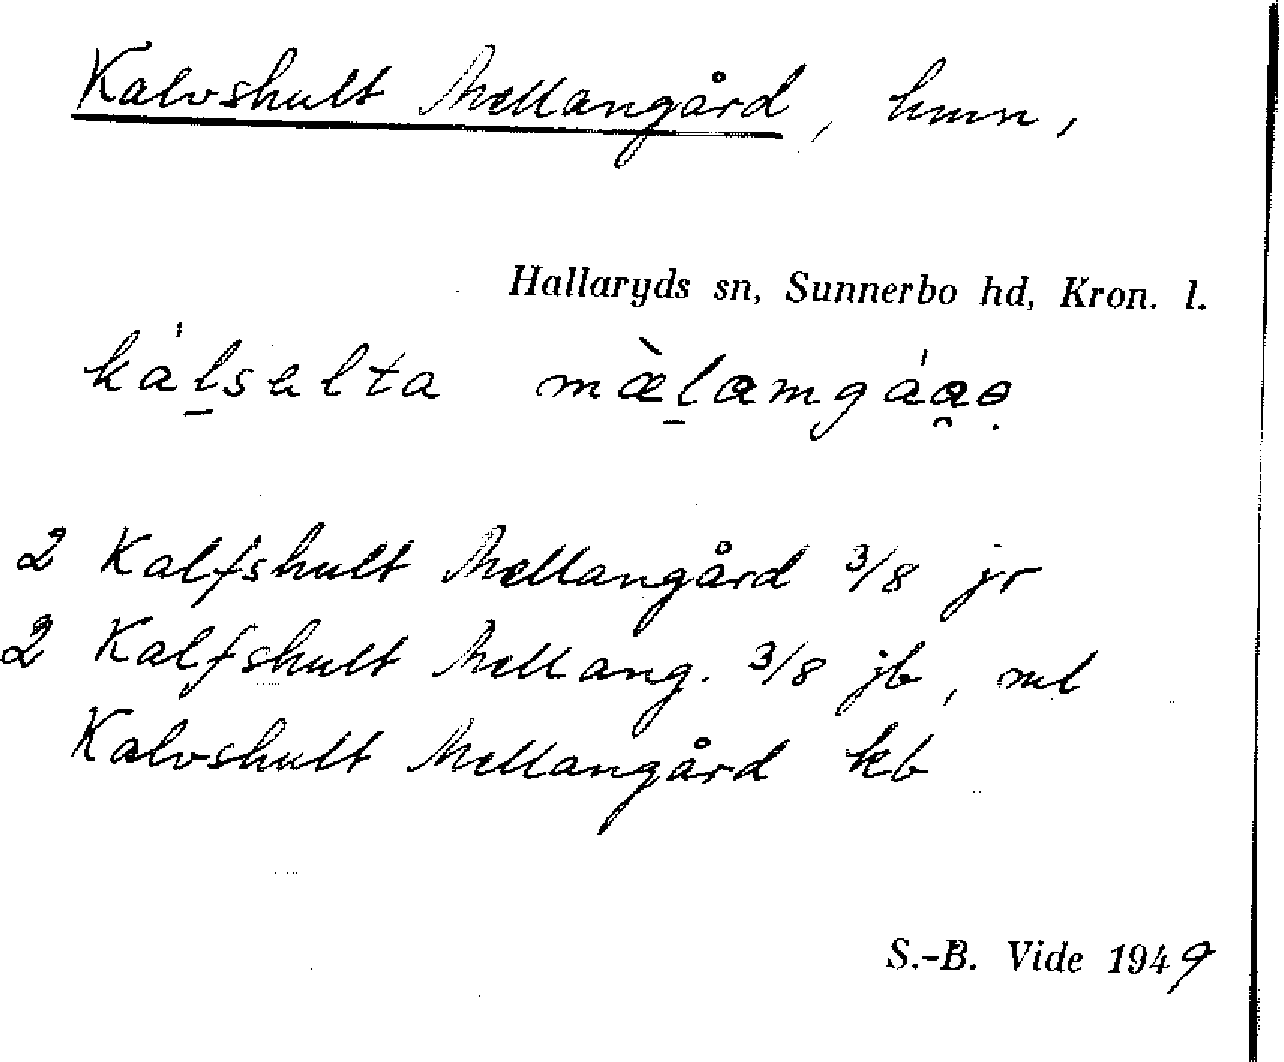 Kalvshult Mellangård, hmn,
Hallaryds sn, Sunnerbo hd, Kron. l.
ká̍ḻsalta mæ̀ḻæmgá̍æ̯ə̣
2 Kalfshult Mellangård 3/8 jr
2 Kalfshult Mellang. 3/8 jb, ml
Kalvshult Mellangård kb
S.-B. Vide 1949